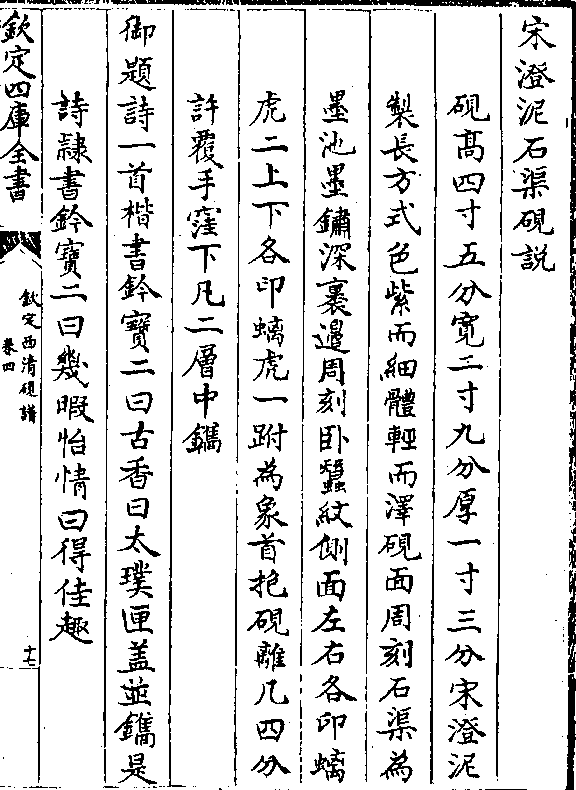 宋澄泥石渠硯説
硯髙四寸五分寛三寸九分厚一寸三分宋澄泥
製長方式色紫而細體輕而澤硯面周刻石渠為
墨池墨鏽深裹邉周刻卧蠶紋側面左右各印螭
虎二上下各印螭虎一跗為象首抱硯離几四分
許覆手窪下凡二層中鐫
御題詩一首楷書鈐寶二曰古香曰太璞匣葢並鐫是
詩隷書鈐寶二曰幾暇怡情曰得佳趣
欽定四庫全書
欽定西清硯譜
卷四
十七